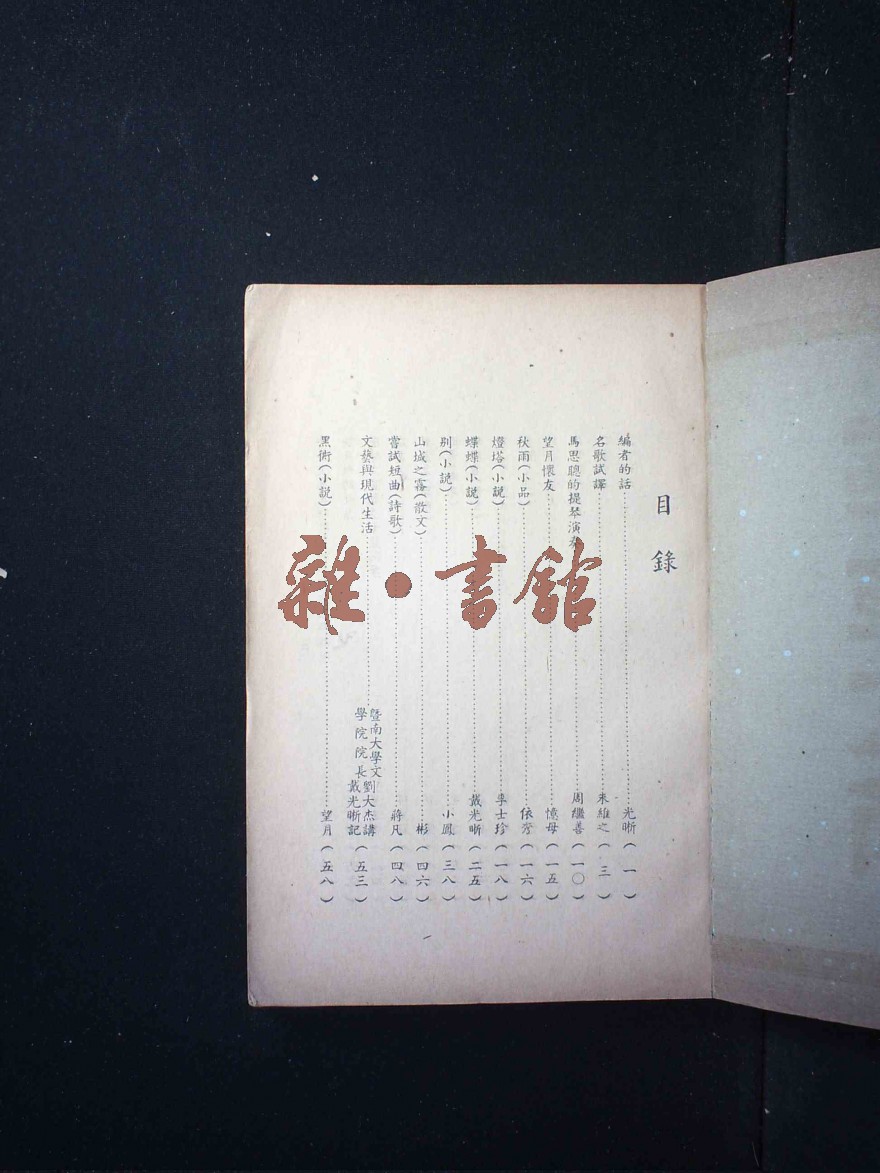 目錄
編者的話 光晣 (一)
名歌試譯 朱維之 (三)
馬思聰的提琴演奏 周繼善 (一〇)
望月懷友 憶母 (一五)
秋雨(小品) 依芳 (一六)
燈塔(小說) 李士珍 (一八)
蝶蝶(小說) 戴光晣 (二五)
別(小說) 小鳳 (三八)
山城之霧(散文) 彬 (四六)
嘗試短曲(詩歌) 蔣凡 (四八)
文藝與現代生活 暨南大學文學院院長 劉大杰講 戴光晣記 (五三)
黑術(小説) 望月 (五八)
雜·書館